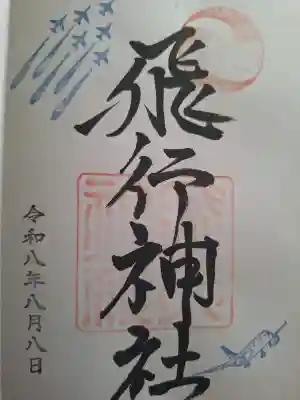 飛行神社
令和八年八月八日